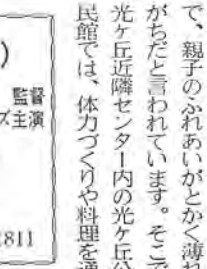 で、親子のふれあいがとかく薄れ
がちだと言われています。そこで
光ヶ丘近隣センター内の光ヶ丘公
民館では、体力づくりや料理を通
)
監督
ズ主演
2811